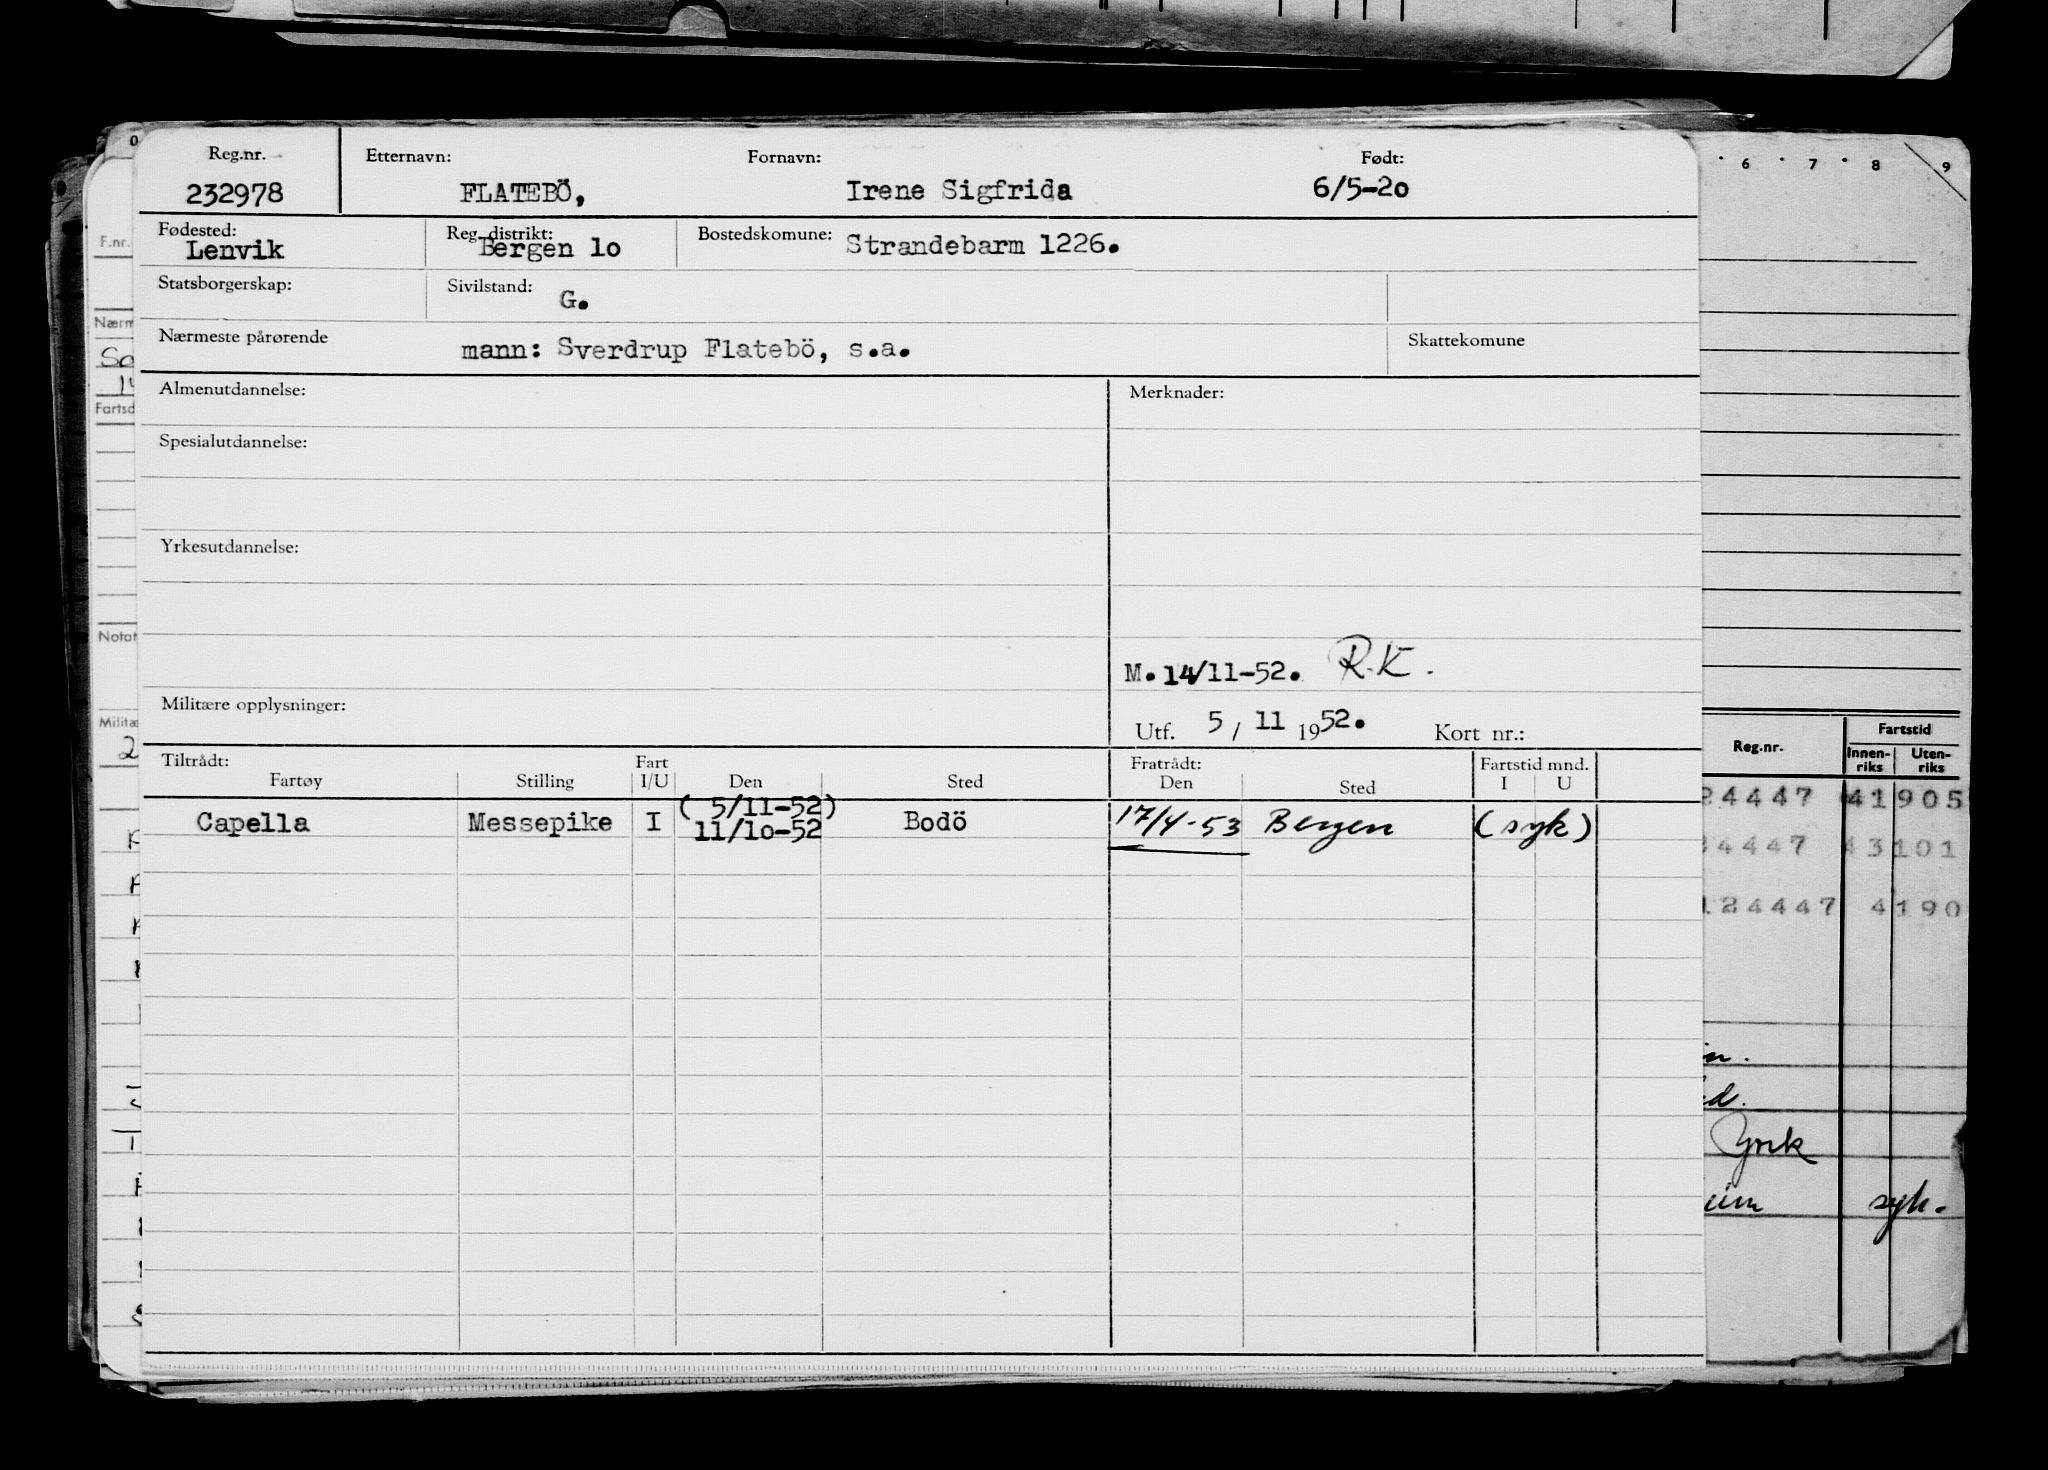 0 6 7 8 9
Reg.nr. Etternavn: Fornavn: Født:
232978 FLATEBÖ, Irene Sigfrida 6/5-2o
Fødested: Reg. distrikt: Bostedskomune:
Lenvik Bergen 1o Strandebarm 1226.
Statsborgerskap: Sivilstand: G.
Nærmeste pårørende mann: Sverdrup Flatebö, s.a. Skattekomune
Almenutdannelse: Merknader:
Spesialutdannelse:
Yrkesutdannelse:
M.14/11-52. R.K.
Militære opplysninger:
Utf. 5 / 11 1952. Kort nr.:
Tiltrådt: Fart Fratrådt: Fartstid mnd.
Fartøy Stilling I/U Den Sted Den Sted I U
(5/11-52)
Capella Messepike I 11/1o-52 Bodö 17/4-53 Bergen (syk)
F.nr.
Nærm
Fartsd
Notat
Militæ
2
Reg.nr. Fartstid
Innen-riks Uten-riks
24447 41905
4447 43101
124447 4190
in.
d.
York
eim syk.